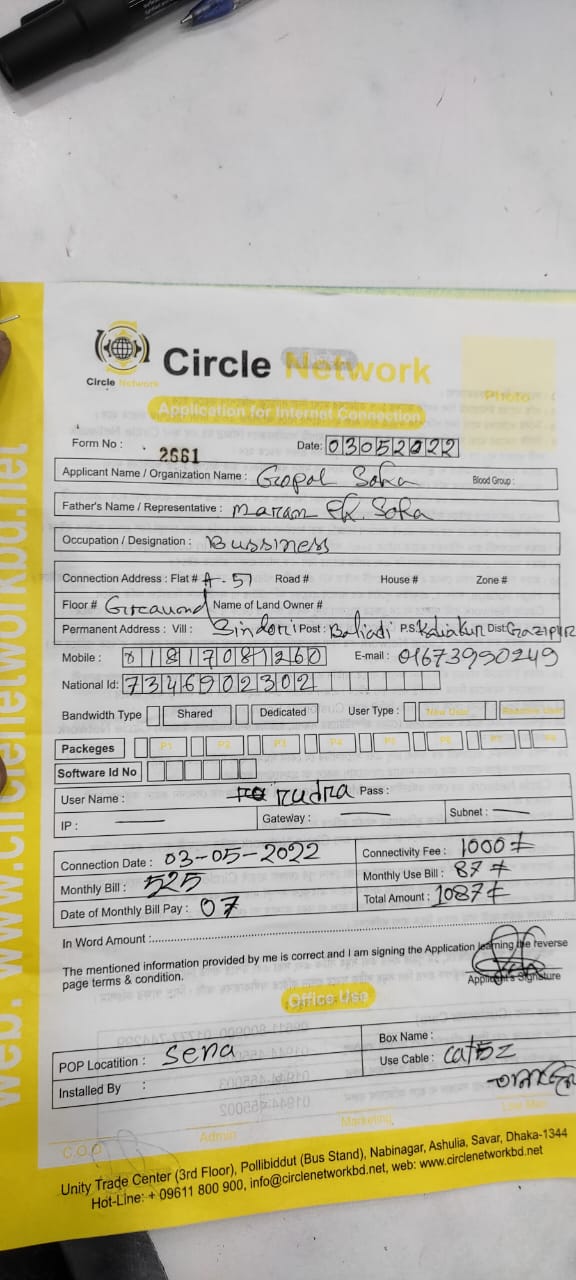 Circle Network
Circle Network
Application for Internet Connection
Photo
Form No : 2661 Date: 03052022
Applicant Name / Organization Name : Gopal Saha Blood Group :
Father's Name / Representative :
Occupation / Designation : Bussiness
Connection Address : Flat # A-51 Road # House # Zone #
Floor # Name of Land Owner #
Permanent Address : Vill : Sindori Post : Baliadi P.S Kaliakur Dist: GAZIPUR
Mobile : 01817081260 E-mail : 01673990249
National Id: 7346902302
Bandwidth Type Shared Dedicated User Type : New User
Packeges P1 P2 P3 P4 P5 P6 P7 P8
Software Id No
User Name : rudra Pass :
IP : — Gateway : — Subnet : —
Connection Date : 03-05-2022 Connectivity Fee : 1000/=
Monthly Bill : 525 Monthly Use Bill : 87/=
Date of Monthly Bill Pay : 07 Total Amount : 1087/=
In Word Amount :
The mentioned information provided by me is correct and I am signing the Application learning the reverse
page terms & condition.
Applicant's Signature
Office Use
POP Locatition : Sena Box Name :
Installed By : Use Cable :
C.O.O Admin Marketing
Unity Trade Center (3rd Floor), Pollibiddut (Bus Stand), Nabinagar, Ashulia, Savar, Dhaka-1344
Hot-Line: + 09611 800 900, info@circlenetworkbd.net, web: www.circlenetworkbd.net
web: www.circlenetworkbd.net